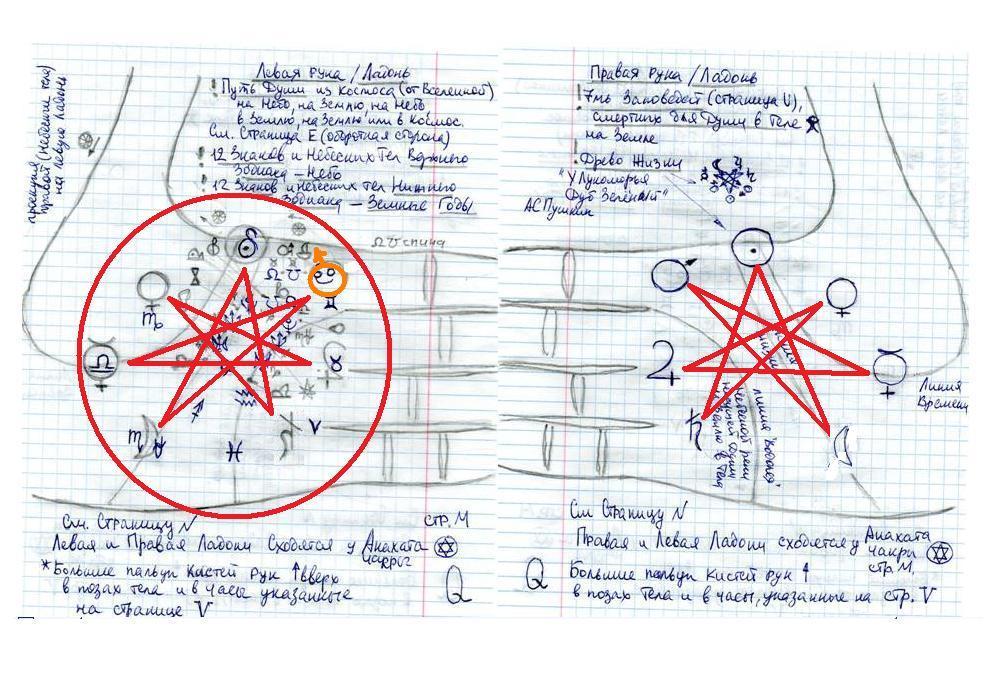 Левая рука / Ладонь
! Путь Души из Космоса (от Вселенной)
на Небо, на Землю, на Небо
в Землю, на Землю или в Космос.
См. Страница Е (оборотная сторона)
! 12 Знаков и Небесных Тел Верхнего
Зодиака — Небо
! 12 Знаков и Небесных тел Нижнего
Зодиака — Земные Годы
проекция
правой (Небесные тела)
на Левую Ладонь
спина
См. Страницу N
стр. М
Левая и Правая Ладони Сходятся у Анахата
чакры
* Большие пальцы Кистей Рук ↑ вверх
в позах тела и в часы указанные
на странице V
Q
Правая Рука / Ладонь
! 7мь Заповедей (страница V),
смертных для Души в Теле
на Земле
! Древо Жизни
"У Лукоморья
Дуб Зелёный"
АС Пушкин
Линия
Времени
См Страницу N
Правая и Левая Ладони сходятся у Анахата
чакры
стр. М.
Q
Большие пальцы Кистей Рук ↑
в позах Тела и в часы, указанные на стр. V